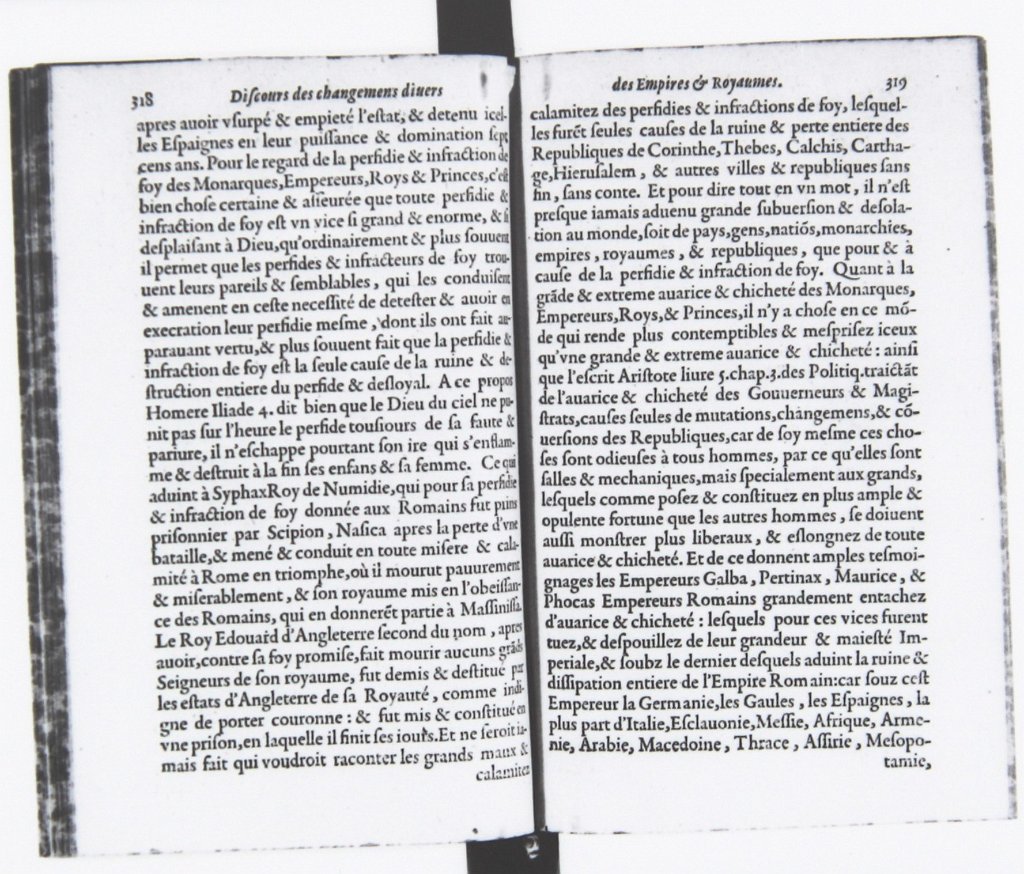 318 Diſcours des changemens diuers
apres auoir vſurpé & empieté l'eſtat, & detenu icel-
les Eſpaignes en leur puiſſance & domination ſept
cens ans. Pour le regard de la perfidie & infraction de
foy des Monarques, Empereurs, Roys & Princes, c'eſt
bien choſe certaine & aſſeurée que toute perfidie &
infraction de foy eſt vn vice ſi grand & enorme, & ſi
deſplaiſant à Dieu, qu'ordinairement & plus ſouuent
il permet que les perfides & infracteurs de foy trou-
uent leurs pareils & ſemblables, qui les conduiſent
& amenent en ceſte neceſſité de deteſter & auoir en
execration leur perfidie meſme, dont ils ont fait au-
parauant vertu, & plus ſouuent fait que la perfidie &
infraction de foy eſt la ſeule cauſe de la ruine & de-
ſtruction entiere du perfide & deſloyal. A ce propos
Homere Iliade 4. dit bien que le Dieu du ciel ne pu-
nit pas ſur l'heure le perfide touſiours de ſa faute &
pariure, il n'eſchappe pourtant ſon ire qui s'enflam-
me & deſtruit à la fin ſes enfans & ſa femme. Ce qui
aduint à Syphax Roy de Numidie, qui pour ſa perfidie
& infraction de foy donnée aux Romains fut prins
priſonnier par Scipion, Naſica apres la perte d'vne
bataille, & mené & conduit en toute miſere & cala-
mité à Rome en triomphe, où il mourut pauurement
& miſerablement, & ſon royaume mis en l'obeiſſan-
ce des Romains, qui en donnerẽt partie à Maſſiniſſa.
Le Roy Edouard d'Angleterre ſecond du nom, apres
auoir, contre ſa foy promiſe, fait mourir aucuns grãds
Seigneurs de ſon royaume, fut demis & deſtitué par
les eſtats d'Angleterre de ſa Royauté, comme indi-
gne de porter couronne: & fut mis & conſtitué en
vne priſon, en laquelle il finit ſes iours. Et ne ſeroit ia-
mais fait qui voudroit raconter les grands maux &
calamitez
des Empires & Royaumes. 319
calamitez des perfidies & infractions de foy, leſquel-
les furẽt ſeules cauſes de la ruine & perte entiere des
Republiques de Corinthe, Thebes, Calchis, Cartha-
ge, Hieruſalem, & autres villes & republiques ſans
fin, ſans conte. Et pour dire tout en vn mot, il n'eſt
preſque iamais aduenu grande ſubuerſion & deſola-
tion au monde, ſoit de pays, gens, natiõs, monarchies,
empires, royaumes, & republiques, que pour & à
cauſe de la perfidie & infraction de foy. Quant à la
grãde & extreme auarice & chicheté des Monarques,
Empereurs, Roys, & Princes, il n'y a choſe en ce mõ-
de qui rende plus contemptibles & meſpriſez iceux
qu'vne grande & extreme auarice & chicheté: ainſi
que l'eſcrit Ariſtote liure 5. chap. 3. des Politiq. traictãt
de l'auarice & chicheté des Gouuerneurs & Magi-
ſtrats, cauſes ſeules de mutations, changemens, & cõ-
uerſions des Republiques, car de ſoy meſme ces cho-
ſes ſont odieuſes à tous hommes, par ce qu'elles ſont
ſalles & mechaniques, mais ſpecialement aux grands,
leſquels comme poſez & conſtituez en plus ample &
opulente fortune que les autres hommes, ſe doiuent
auſſi monſtrer plus liberaux, & eſlongnez de toute
auarice & chicheté. Et de ce donnent amples teſmoi-
gnages les Empereurs Galba, Pertinax, Maurice, &
Phocas Empereurs Romains grandement entachez
d'auarice & chicheté: leſquels pour ces vices furent
tuez, & deſpouillez de leur grandeur & maieſté Im-
periale, & ſoubz le dernier deſquels aduint la ruine &
diſſipation entiere de l'Empire Romain: car ſouz ceſt
Empereur la Germanie, les Gaules, les Eſpaignes, la
plus part d'Italie, Eſclauonie, Meſſie, Afrique, Arme-
nie, Arabie, Macedoine, Thrace, Aſſirie, Meſopo-
tamie,